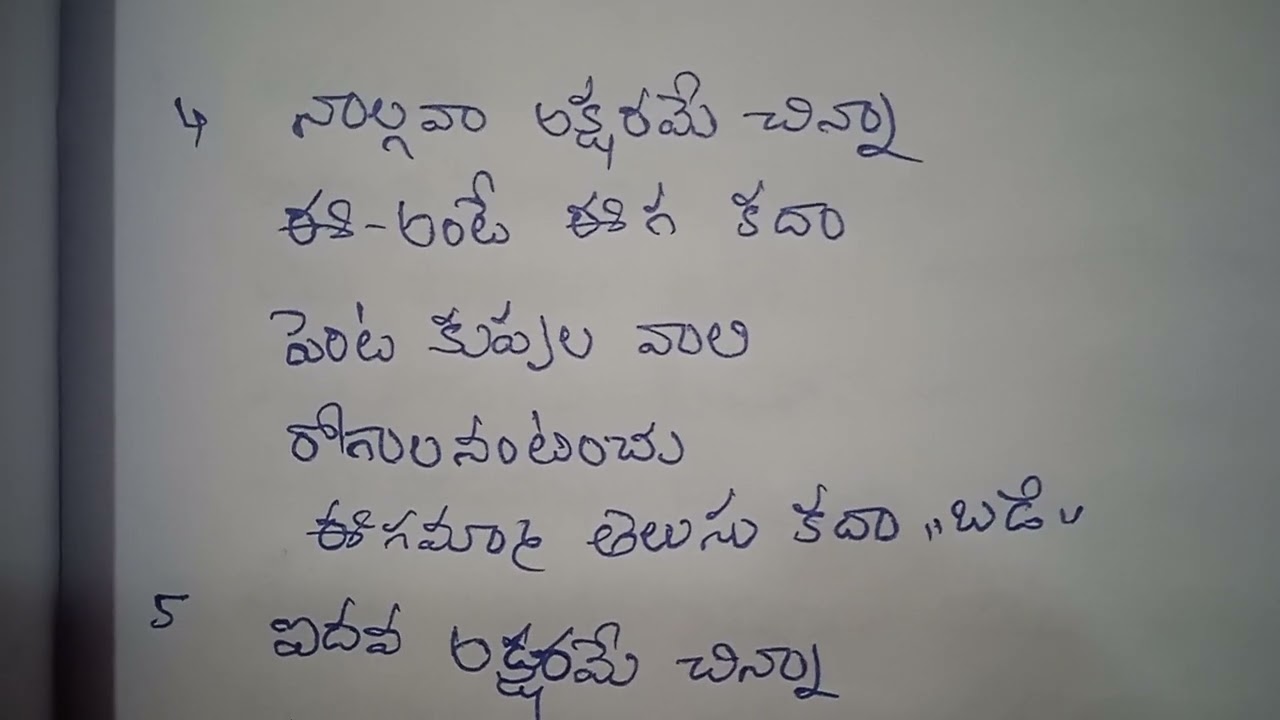 4 నాల్గవా అక్షరమే చిన్నా
ఈ-అంటే ఈగ కదా
పెంట కుప్పల వాలి
రోగాలనంటించు
ఈగమ్మా తెలుసు కదా "బడి"
5 ఐదవ అక్షరమే చిన్నా